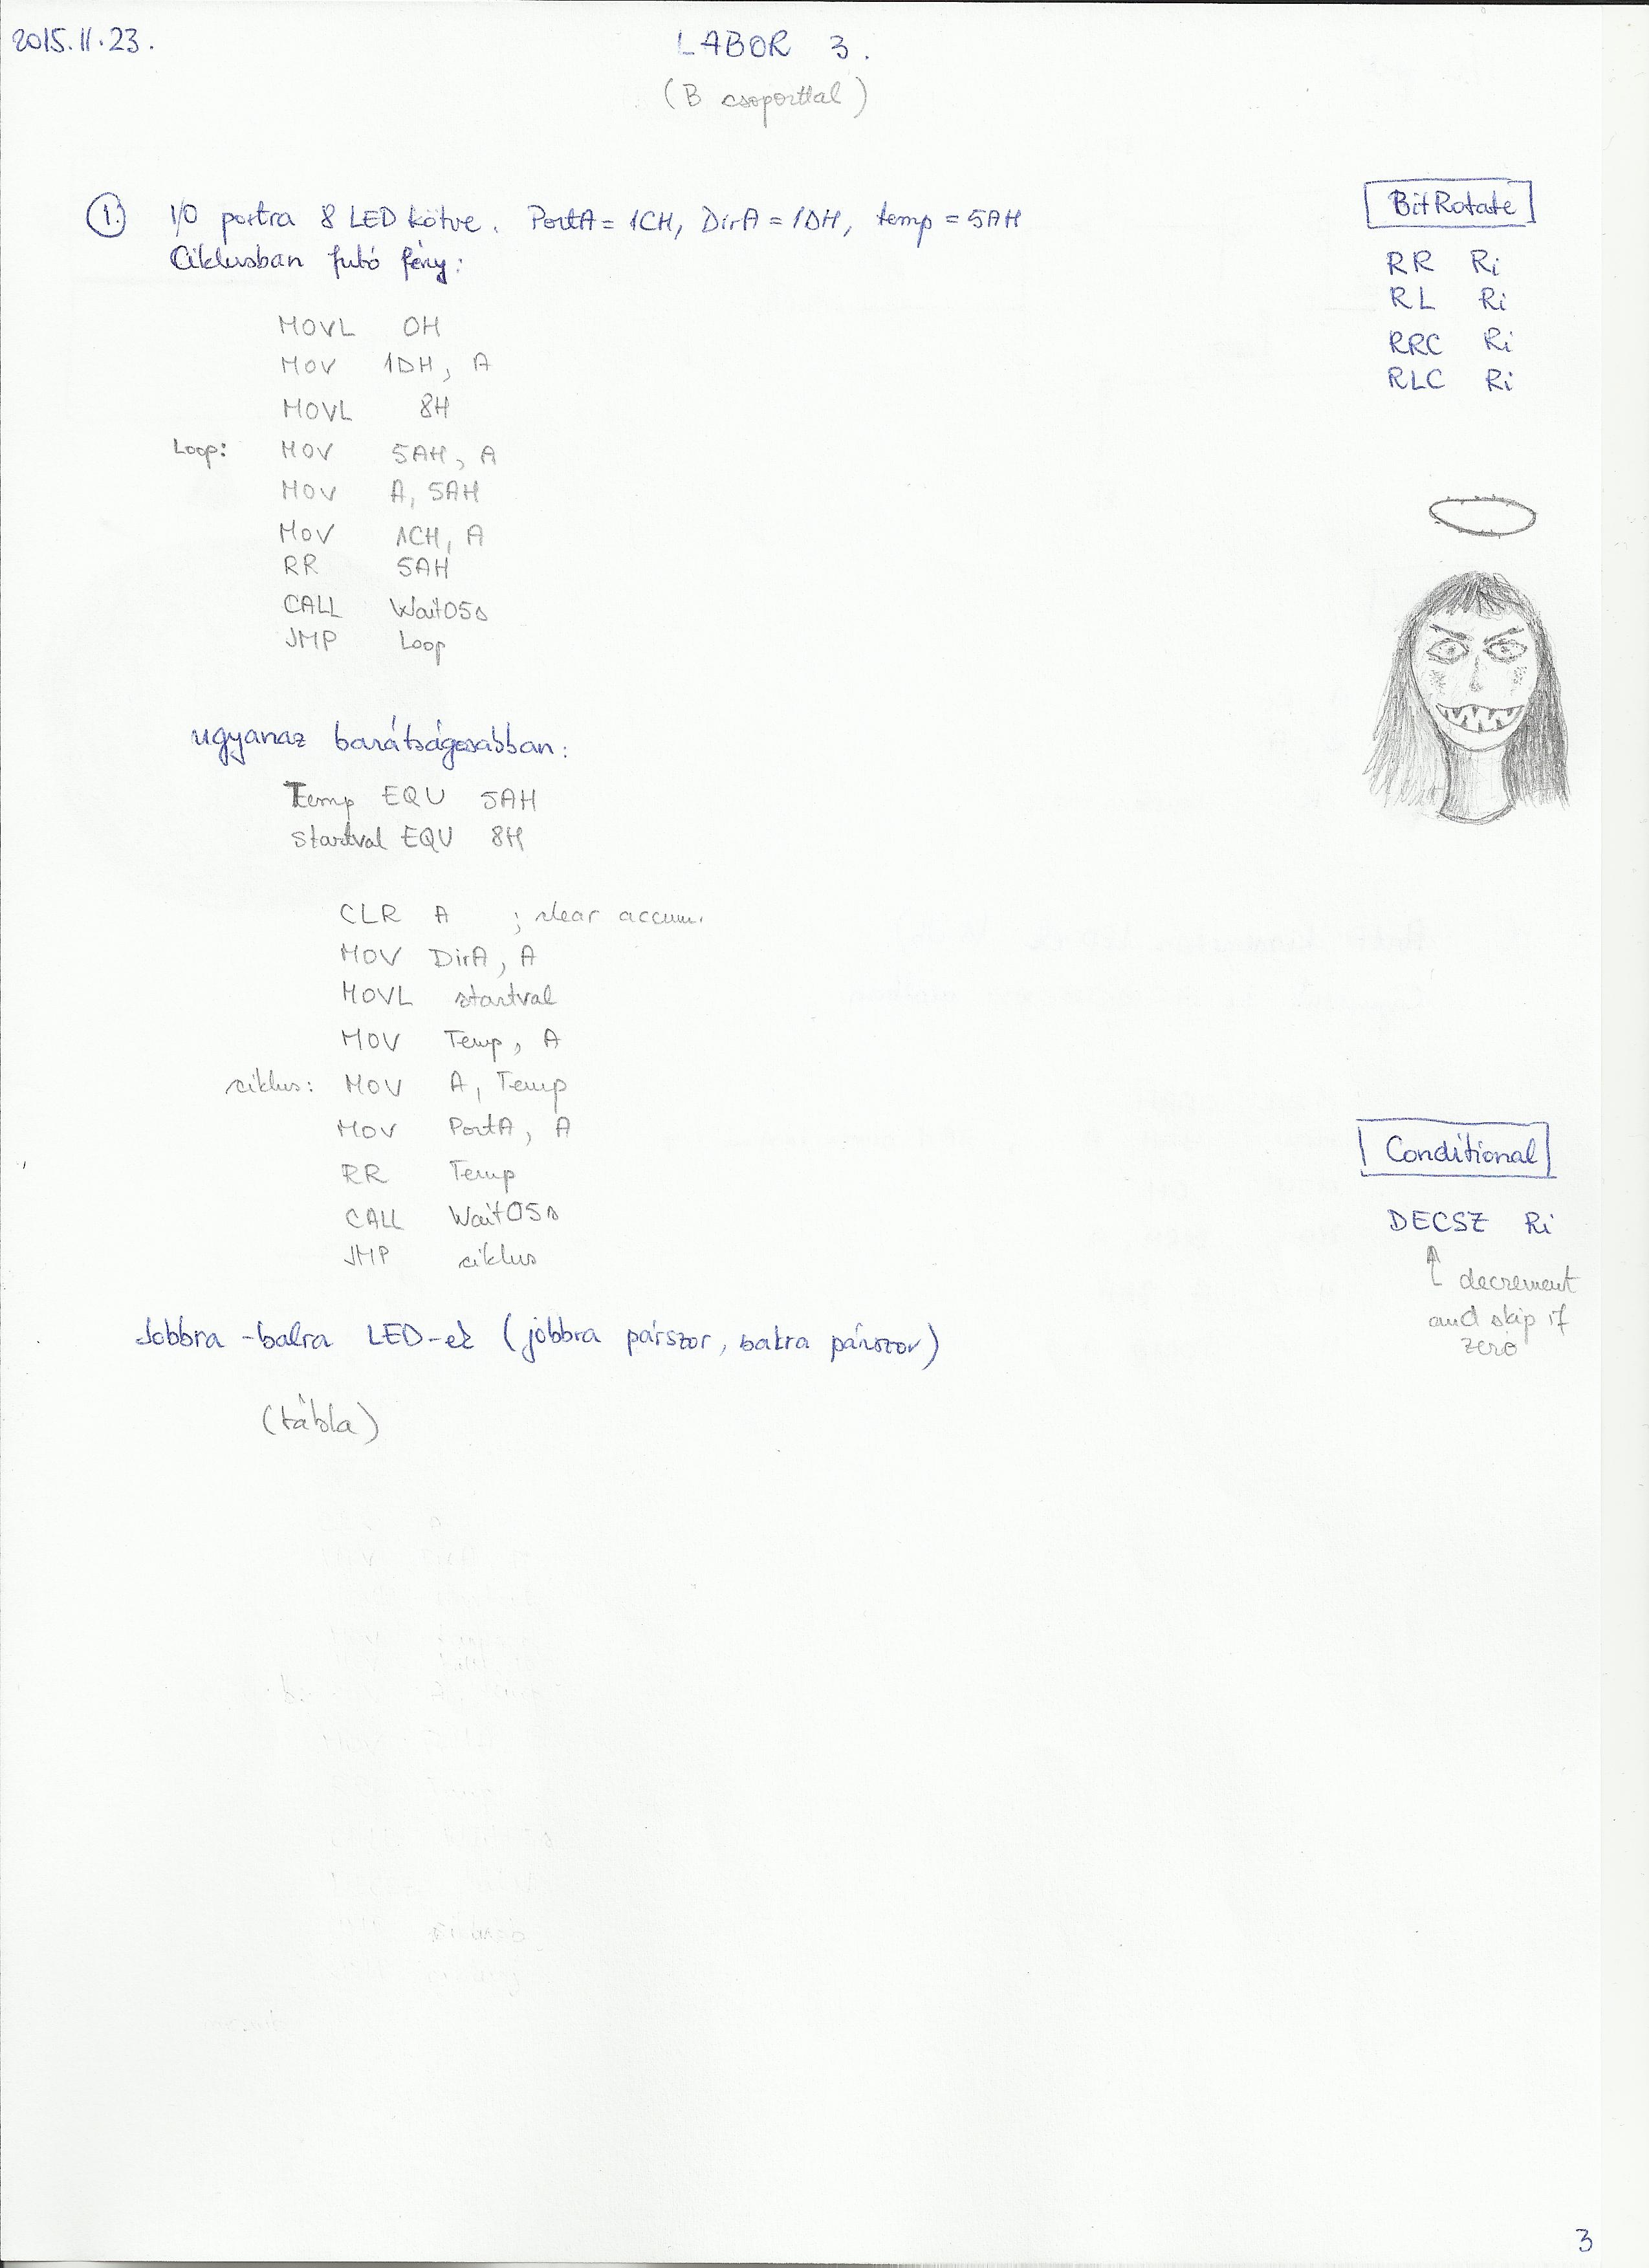 2015.11.23.
LABOR 3.
(B csoporttal)
1. I/O portra 8 LED kötve. PortA = 1CH, DirA = 1DH, temp = 5AH
Ciklusban futó fény:
MOVL 0H
MOV 1DH, A
MOVL 8H
Loop: MOV 5AH, A
MOV A, 5AH
MOV 1CH, A
RR 5AH
CALL Wait05s
JMP Loop
ugyanaz barátságosabban:
Temp EQU 5AH
startval EQU 8H
CLR A ; clear accum.
MOV DirA, A
MOVL startval
MOV Temp, A
ciklus: MOV A, Temp
MOV PortA, A
RR Temp
CALL Wait05s
JMP ciklus
Jobbra-balra LED-ek (jobbra párszor, balra párszor)
(tábla)
BitRotate
RR Ri
RL Ri
RRC Ri
RLC Ri
Conditional
DECSZ Ri
decrement
and skip if
zero
3